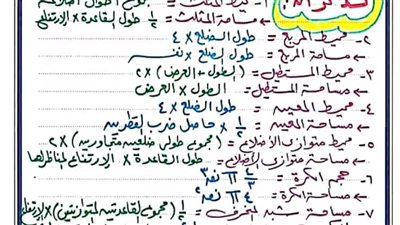 تذكر أن
١- محيط المثلث = مجموع أطوال أضلاعه
مساحة المثلث = ½ طول القاعدة × الارتفاع
٢- محيط المربع = طول الضلع × ٤
مساحة المربع = طول الضلع × نفسه
٣- محيط المستطيل = (الطول + العرض) × ٢
مساحة المستطيل = الطول × العرض
٤- محيط المعين = طول الضلع × ٤
مساحة المعين = ½ حاصل ضرب القطرين
٥- محيط متوازي الأضلاع = (مجموع طولى ضلعين متجاورين) × ٢
مساحة متوازي الأضلاع = طول القاعدة × الارتفاع المناظر لها
٦- حجم الكرة = ٤/٣ π نق٣
مساحة الكرة = ٤ π نق٢
٧- مساحة شبه المنحرف = ½ (مجموع القاعدتين المتوازيتين) × الارتفاع